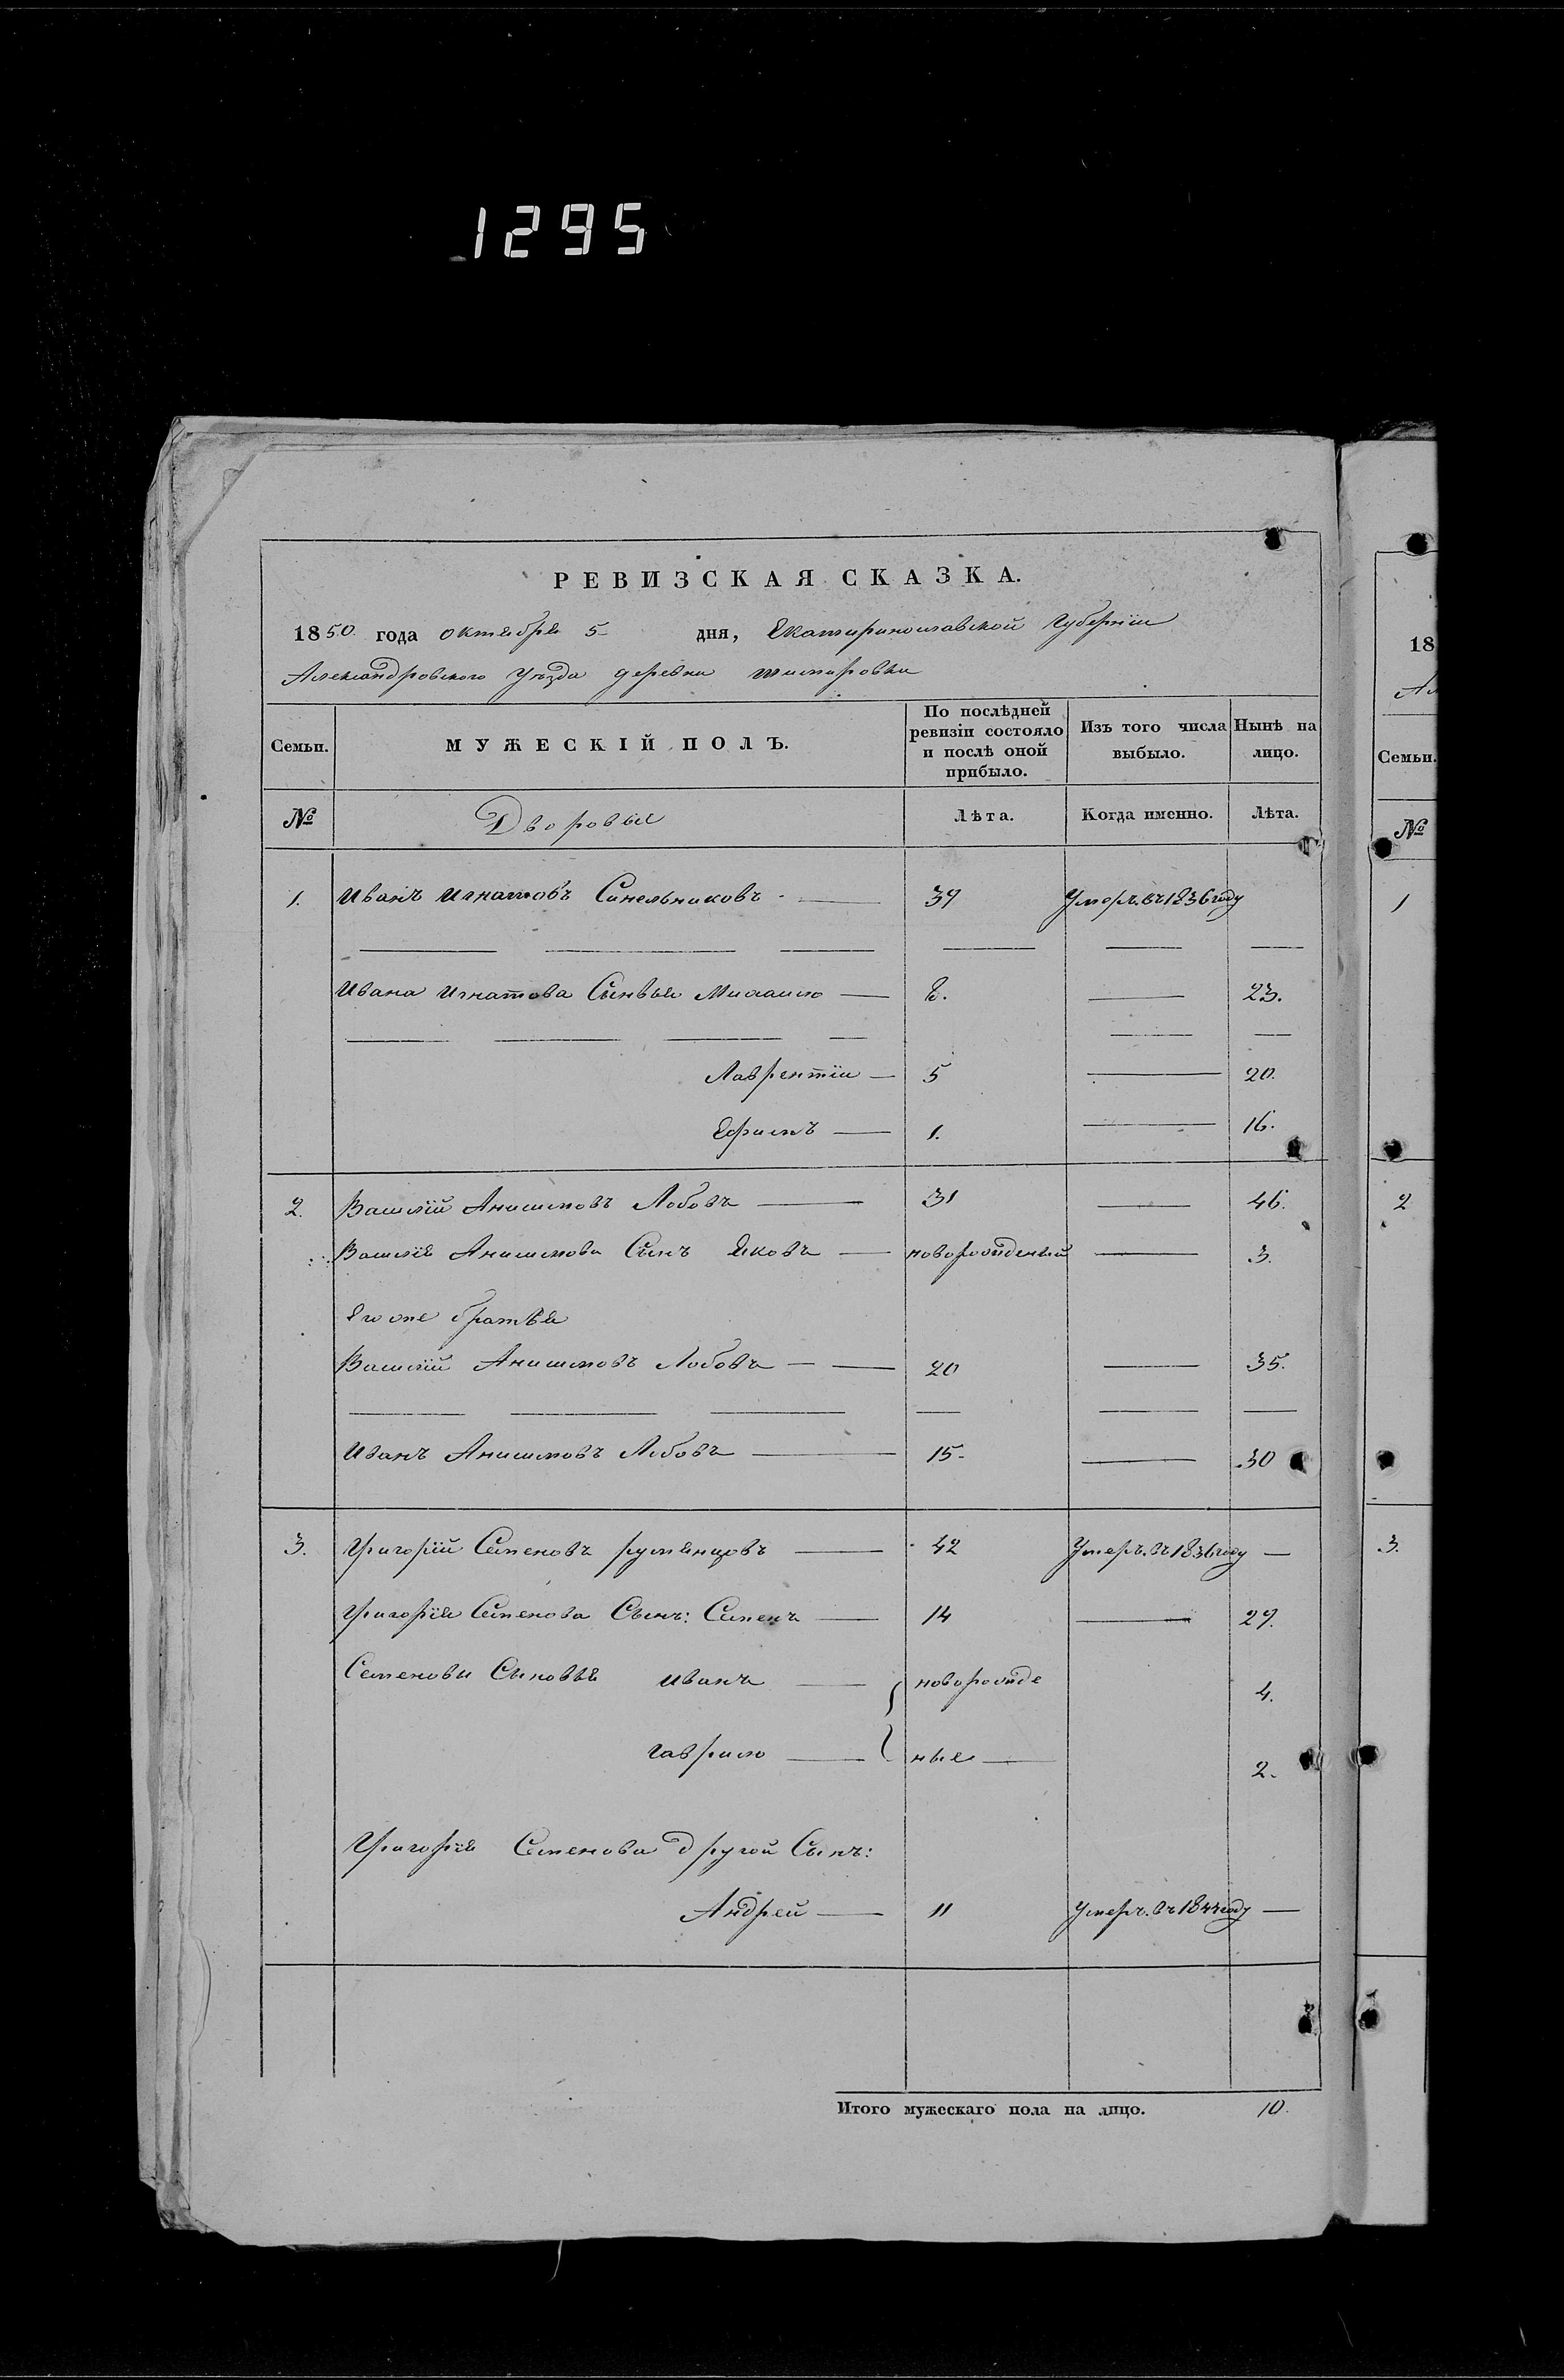 1295
РЕВИЗСКАЯ СКАЗКА.
1850 года октября 5 дня, Екатеринославской Губернїи
Александровского Уѣзда деревни
Семьи. МУЖЕСКІЙ ПОЛЪ. По послѣдней ревизіи состояло и послѣ оной прибыло. Изъ того числа выбыло. Нынѣ на лицо.
№ Дворовые Лѣта. Когда именно. Лѣта.
1. Иванъ Игнатовъ Синельниковъ 39 Умеръ въ 1836 году
Ивана Игнатова Сынвья Михайло 8. 23.
Лаврентїи 5 20.
Ефимъ 1. 16.
2. Василїй Анисимовъ Лобовъ 31 46.
Василїя Анисимова Сынъ Яковъ новорожденый 3.
Его же братья
Василїй Анисимовъ Лобовъ 20 35.
Иванъ Анисимовъ Лобовъ 15. 30
3. Григорїй Семеновъ румянцовъ 42 Умеръ въ 1836 году
Григорїя Семенова Сынъ: Семенъ 14 29.
Семенови Сыновья иванъ новорожде 4.
гаврило ные 2.
Григорїя Семенова другой Сынъ:
Андрей 11 умеръ въ 1844 году
Итого мужескаго пола на лицо. 10.
18
Семьи.
№
1
2
3.